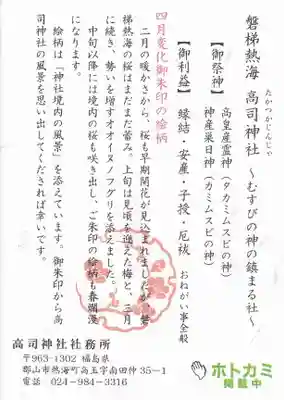 磐梯熱海 高司神社 〜むすびの神の鎮まる社〜
たかつかじんじゃ
【御祭神】 高皇産霊神(タカミムスビの神)
神産巣日神(カミムスビの神)
【御利益】 縁結・安産・子授・厄祓 おねがい事全般
四月変化御朱印の絵柄
二月の暖かさから、桜も早期開花が見込まれましたが、磐
梯熱海の桜はまだまだ蕾み。上旬は見頃を迎えた梅と、三月
に続き、勢いを増すオオイヌノフグリを添えました。
中旬以降には境内の桜も咲き出し、ご朱印の絵柄も春爛漫
になります。
絵柄は「神社境内の風景」を添えています。御朱印から高
司神社の風景を思い出してくだされば幸いです。
高司神社社務所
〒963-1302 福島県
郡山市熱海町高玉字南田仲35-1
電話 024-984-3316
ホトカミ
掲載中